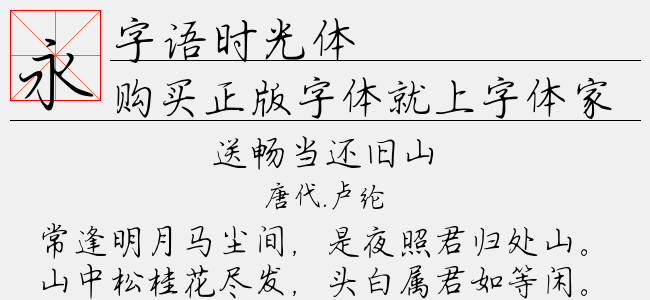 永
字语时光体
购买正版字体就上字体家
送畅当还旧山
唐代.卢纶
常逢明月马尘间，是夜照君归处山。
山中松桂花尽发，头白属君如等闲。